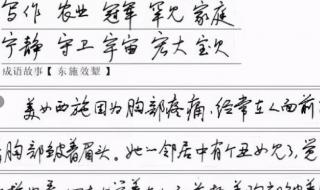 写作 农业 冠军 罕见 家庭
宁静 守卫 宇宙 宏大 宝贝
成语故事【东施效颦】
美女西施因为胸部疼痛,经常在人面前
胸部皱着眉头。她一邻居中有个丑女见了,觉